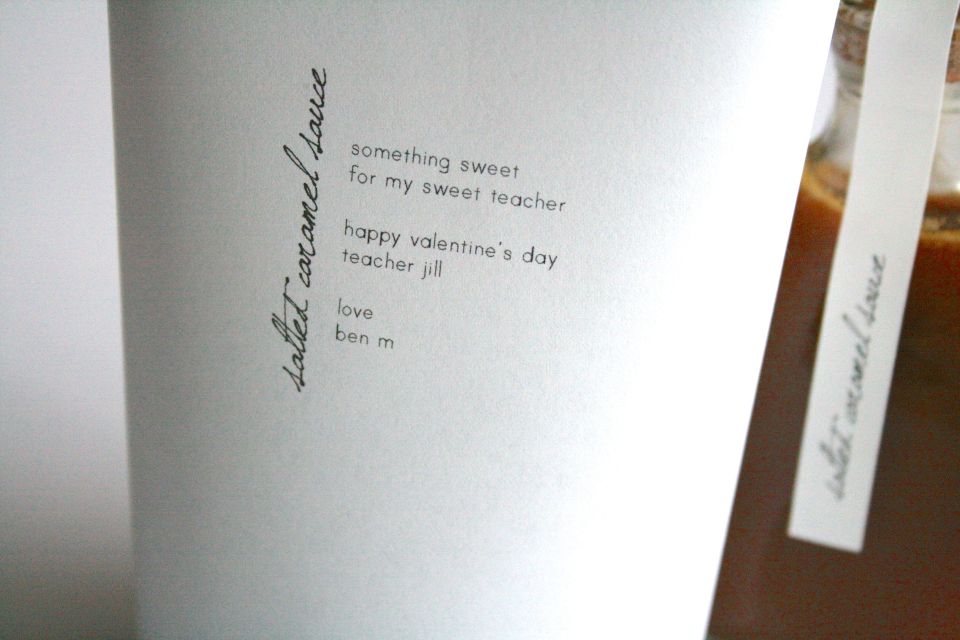 salted caramel sauce
something sweet
for my sweet teacher
happy valentine's day
teacher jill
love
ben m
salted caramel sauce